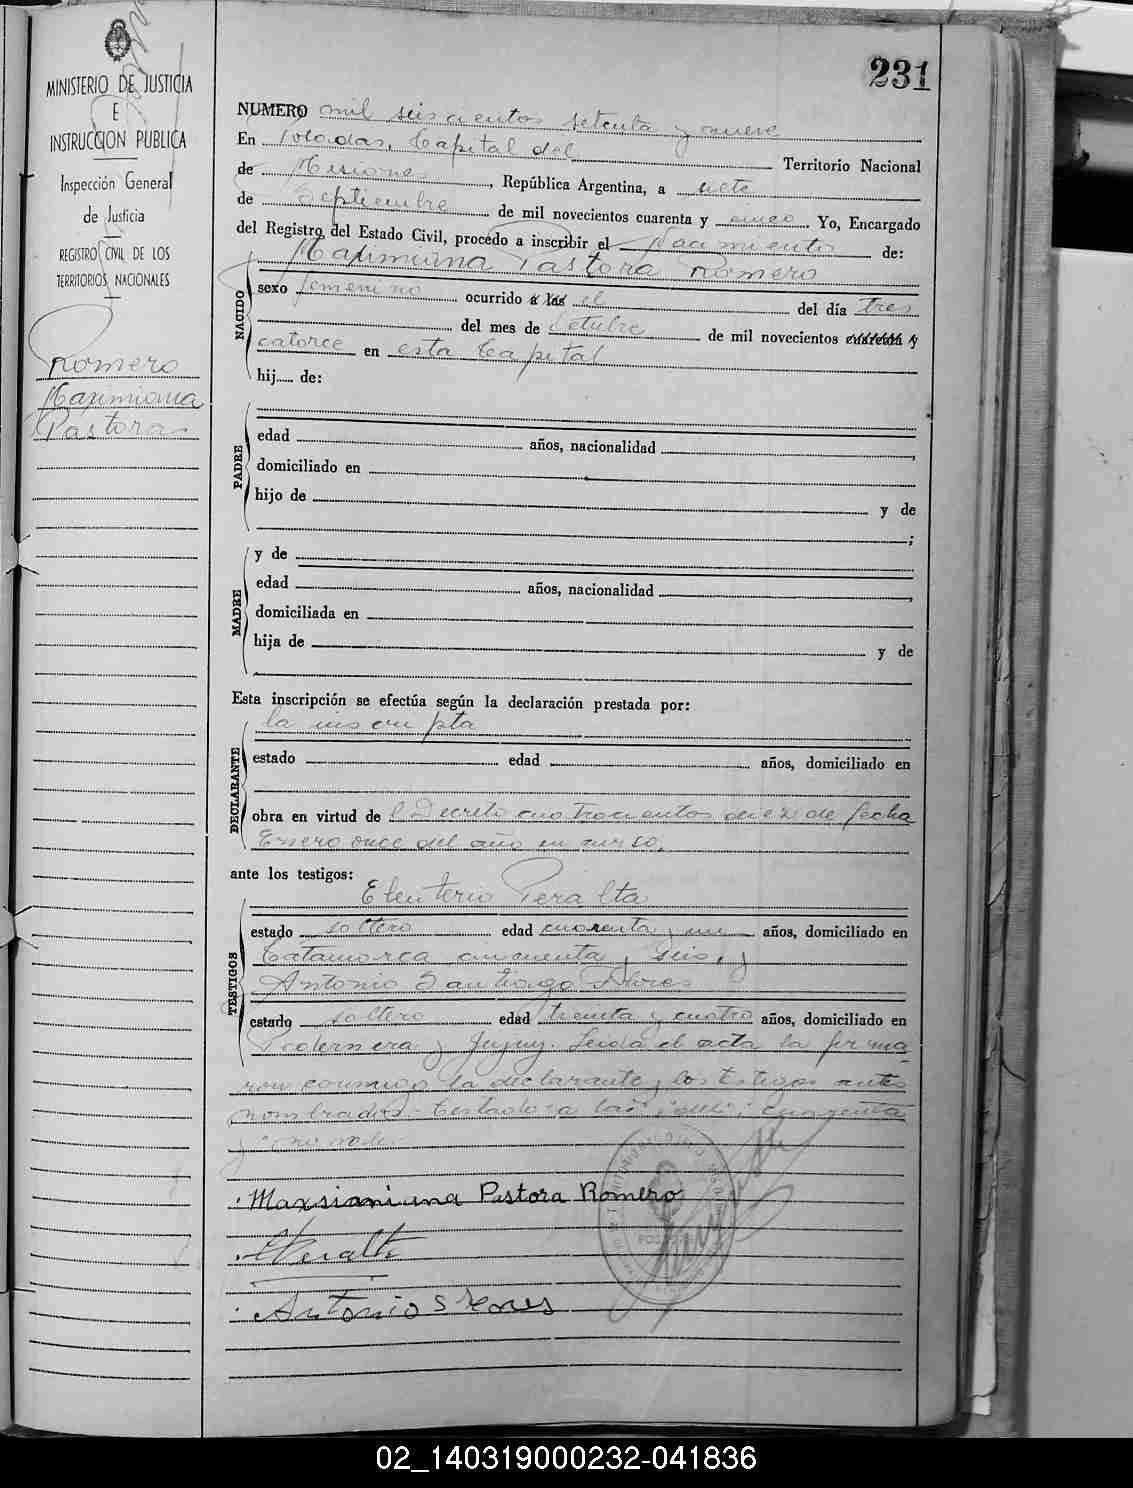 231
MINISTERIO DE JUSTICIA
E
INSTRUCCION PUBLICA
Inspección General
de Justicia
REGISTRO CIVIL DE LOS
TERRITORIOS NACIONALES
Romero
Maximiana
Pastora
NUMERO mil seiscientos setenta y nueve
En Posadas, Capital del Territorio Nacional
de Misiones, República Argentina, a siete
de Septiembre de mil novecientos cuarenta y cinco Yo, Encargado
del Registro del Estado Civil, procedo a inscribir el Nacimiento de:
Maximiana Pastora Romero
NACIDO
sexo femenino ocurrido a las el del día tres
del mes de Octubre de mil novecientos cuarenta y
catorce en esta Capital
hij de:
PADRE
edad años, nacionalidad ,
domiciliado en
hijo de y de
;
MADRE
y de
edad años, nacionalidad ,
domiciliada en
hija de y de
Esta inscripción se efectúa según la declaración prestada por:
DECLARANTE
la inscripta
estado edad años, domiciliado en
obra en virtud de l Decreto cuatrocientos diez de fecha
Enero once del año en curso.
ante los testigos:
TESTIGOS
Eleuterio Peralta
estado soltero edad cuarenta y un años, domiciliado en
Catamarca cincuenta y seis, y
Antonio Santiago Flores
estado soltero edad treinta y cuatro años, domiciliado en
Pedernera y Jujuy. Leída el acta la firma
ron conmigo la declarante y los testigos antes
nombrados.- Testado: a las cuarenta
y: no vale.
Maxsianiana Pastora Romero
Peralta
Antonio S Flores
02_140319000232-041836